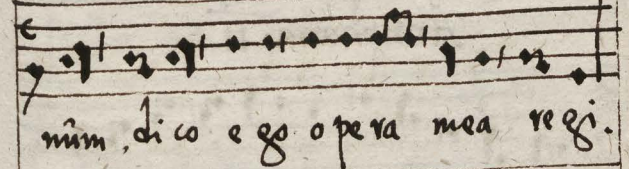 nûm, dico ego opera mea regi.